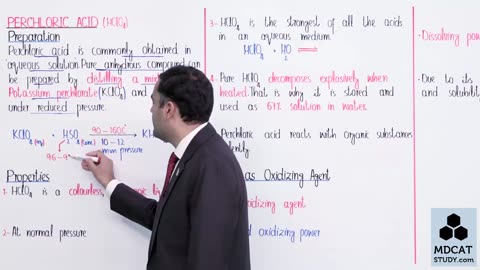 PERCHLORIC ACID (HClO₄)
Preparation
Perchloric acid is commonly obtained in
aqueous solution. Pure anhydrous compound can
be prepared by distilling a mix
Potassium perchlorate (KClO₄) and
under reduced pressure.
KClO₄ (aq) + H₂SO₄ (Conc) 90-160C KH
10-12
mm pressure
96-9
Properties
1- HClO₄ is a colourless
2- At normal pressure
3- HClO₄ is the strongest of all the acids
in an aqueous medium.
HClO₄ + H₂O ⇌
4- Pure HClO₄ decomposes explosively when
heated. That is why it is stored and
used as 67% solution in water.
Perchloric acid reacts with organic substance
as Oxidizing Agent
oxidizing agent
oxidizing power
-Dissolving pow
-Due to its
and solubilit
MDCAT
STUDY.com